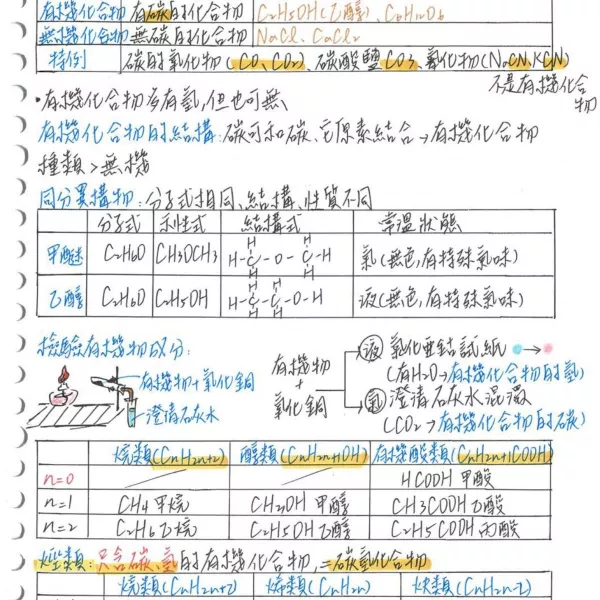 有機化合物 有碳的化合物 C2H5OH(乙醇)、C6H12O6
無機化合物 無碳的化合物 NaCl、CaCl2
特例 碳的氧化物(CO、CO2)、碳酸鹽CO3、氰化物(NaCN、KCN)
不是有機化合物
•有機化合物多有氫,但也可無
有機化合物的結構:碳可和碳、它原素結合→有機化合物
種類>無機
同分異構物:分子式相同、結構、性質不同
分子式 示性式 結構式 常溫狀態
甲醚 C2H6O CH3OCH3 H-C-O-C-H H H H H 氣(無色,有特殊氣味)
乙醇 C2H6O C2H5OH H-C-C-O-H H H H H 液(無色,有特殊氣味)
檢驗有機物成分:
有機物+氧化銅
澄清石灰水
有機物
+
氧化銅
液 氯化亞鈷試紙
(有H2O→有機化合物的氫)
氣 澄清石灰水混濁
(CO2→有機化合物的碳)
烷類(CnH2n+2) 醇類(CnH2n+1OH) 有機酸類(CnH2n+1COOH)
n=0 HCOOH 甲酸
n=1 CH4 甲烷 CH3OH 甲醇 CH3COOH 乙酸
n=2 C2H6 乙烷 C2H5OH 乙醇 C2H5COOH 丙酸
烴類:只含碳、氫的有機化合物,=碳氫化合物
烷類(CnH2n+2) 烯類(CnH2n) 炔類(CnH2n-2)